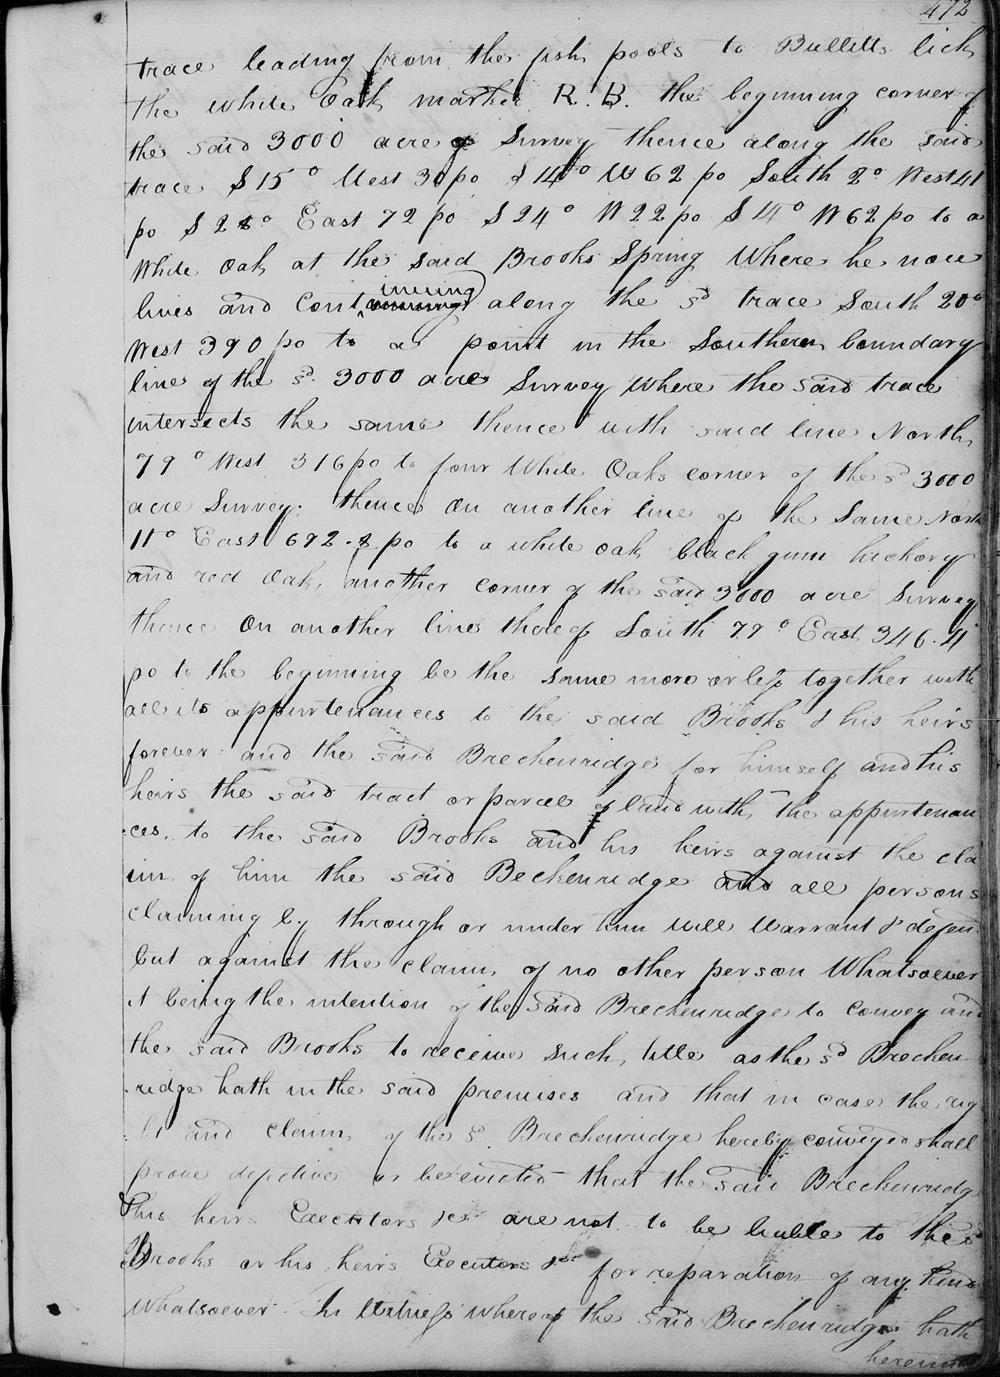 472
trace leading from the fish pools to Bullitts lick
the white Oak marked R. B. the beginning corner of
the said 3000 acre Survey thence along the said
trace S 15° West 30 po S 14° W 62 po South 2° West 41
po S 28° East 72 po S 24° W 22 po S 4° W 62 po to a
White Oak at the said Brooks Spring Where he now
lives and continuing along the sd trace South 20°
West 390 po to a point in the Southern boundary
line of the sd. 3000 acre Survey where the said trace
intersects the same thence with said line North
79° West 316 po to four White Oaks corner of the sd 3000
acre Survey. thence On another line of the Same North
11° East 692.8 po to a white oak black gum hickory
and red Oak, another corner of the said 3000 acre Survey
thence On another line thereof South 79° East 346.4
po to the beginning be the same more or less together with
all its appurtenances to the said Brooks & his heirs
forever and the said Breckenridge for himself and his
heirs the said tract or parcel of land with the appurtenan
ces, to the said Brooks and his heirs against the cla
im of him the said Beckenridge and all persons
claiming by through or under him will Warrant & defen
but against the claim of no other person Whatsoever
it being the intention of the said Breckenridge to convey and
the said Brooks to receive such title as the sd Brecken
ridge hath in the said premises and that in case the rig
ht and claim of the sd. Breckenridge hereby conveyed shall
prove defective or be evicted that the said Breckenridge
his heirs Executors &c are not to be liable to the sd
Brooks or his heirs Executors &c for reparation of any kind
Whatsoever In Witness whereof the said Breckenridge hath
hereunto